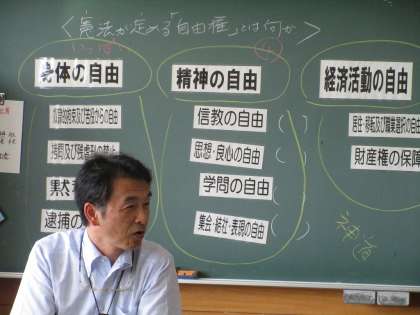 ＜憲法が定める「自由権」とは何か＞
身体の自由
精神の自由
経済活動の自由
奴隷的拘束及び苦役からの自由
拷問及び残虐刑の禁止
黙
逮捕の
信教の自由( )
思想・良心の自由( )
学問の自由( )
集会・結社・表現の自由( )
居住・移転及び職業選択の自由
財産権の保障
神道